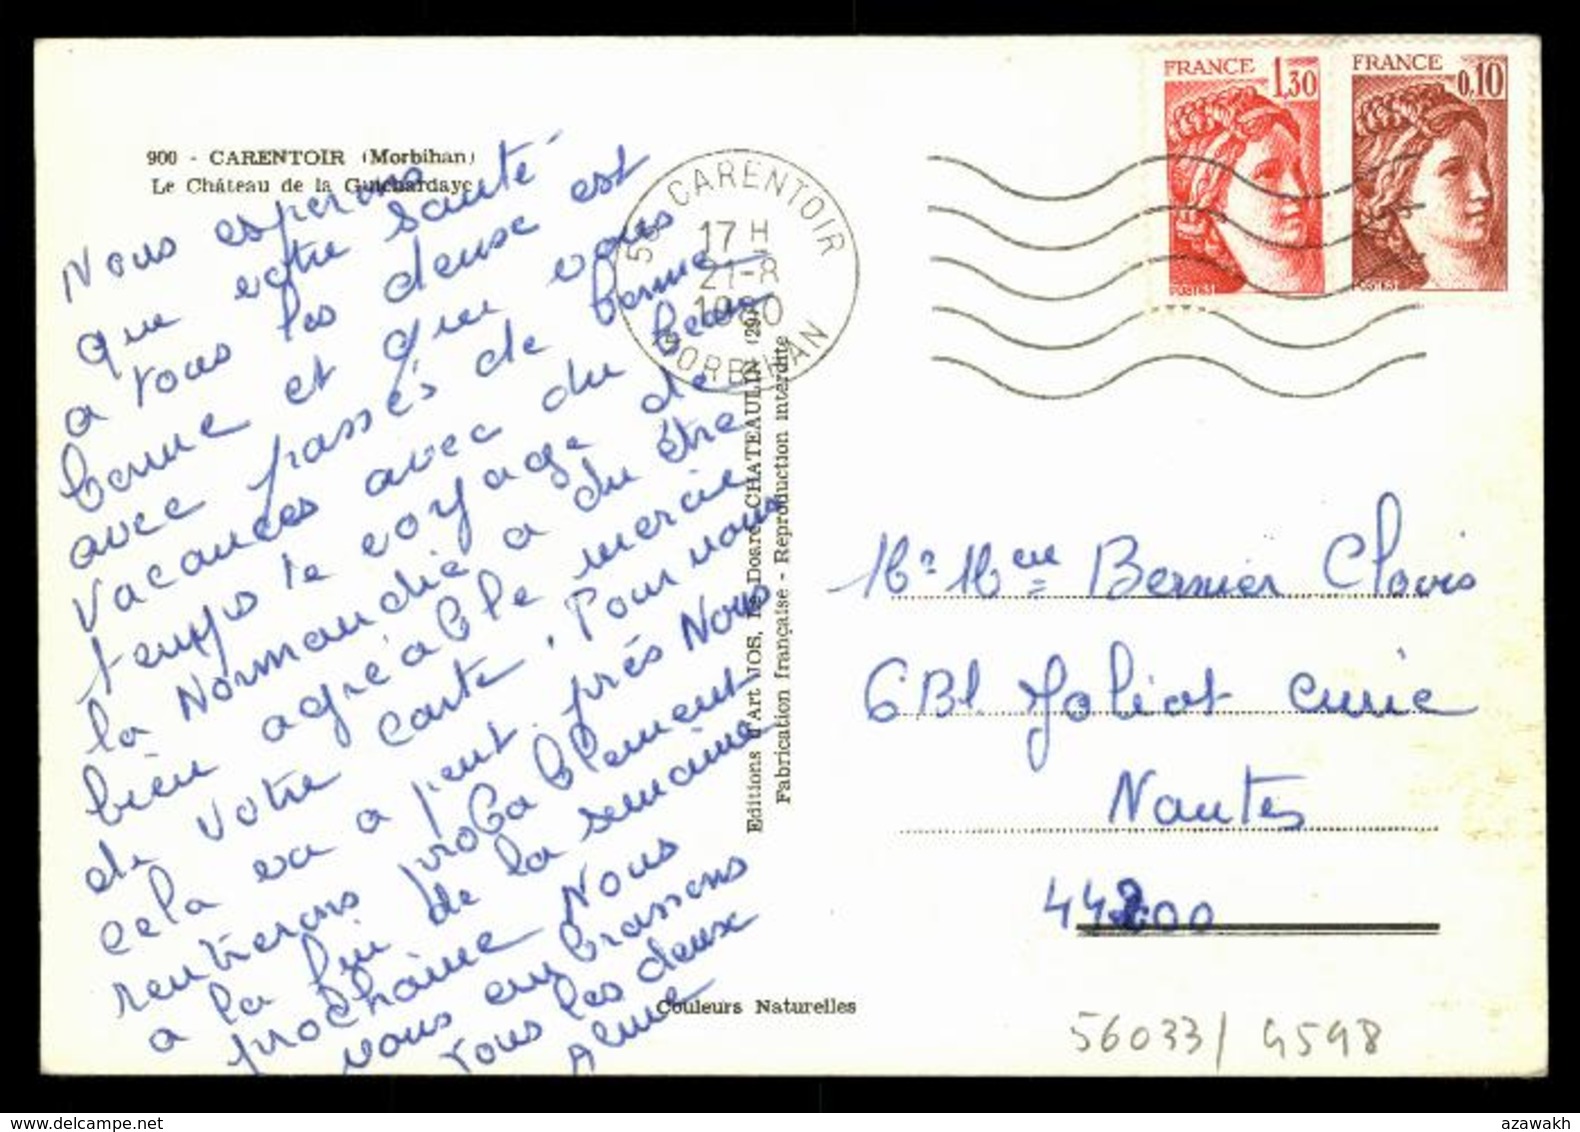 900 - CARENTOIR (Morbihan)
Le Château de la Guichardaye
Nous esperons
que votre santé
a tous les deuse est
bonne et que vous
avec passés de bonne
vacances avec du beau
temps le voyage de
la Normandie a du être
bien agréable merci
de votre carte. Pour nous
cela va a peut près Nous
rentrerons probablement
a la fin de la semaine
prochaine Nous
vous embrassons
tous les deux
56 CARENTOIR
17 H
21-8
1980
MORBIHAN
FRANCE 1,30
FRANCE 0,10
Editions d'Art JOS, Le Doaré, CHATEAULIN (29)
Fabrication française - Reproduction interdite
Couleurs Naturelles
Mr Mme Bernier Clovis
6 Bl. Joliot Curie
Nantes
44200
56033/ 4598
azawakh